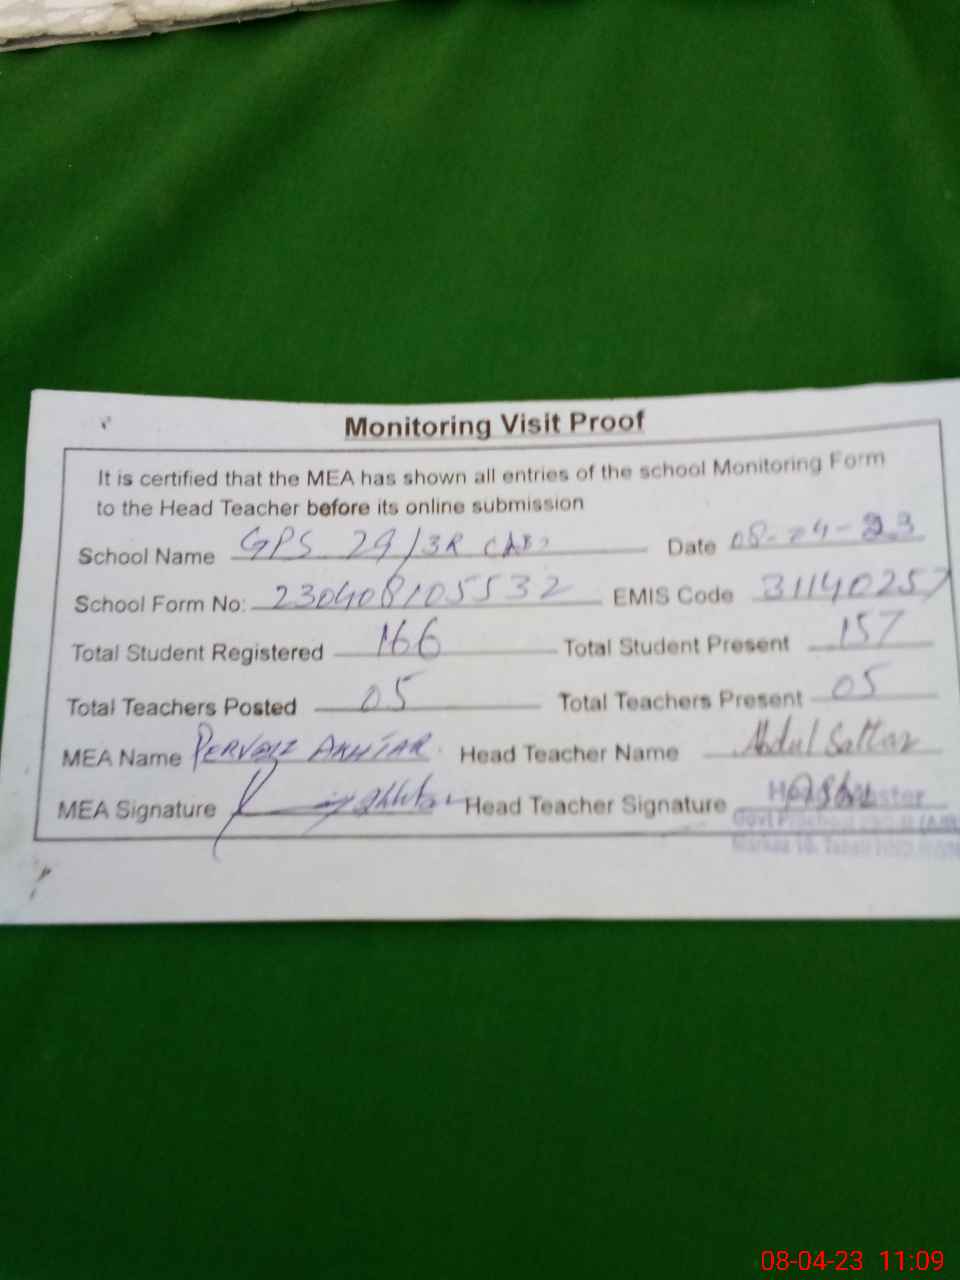 Monitoring Visit Proof
It is certified that the MEA has shown all entries of the school Monitoring Form
to the Head Teacher before its online submission
School Name GPS 29/3R Date 08-04-23
School Form No: 230408105532 EMIS Code 31140257
Total Student Registered 166 Total Student Present 157
Total Teachers Posted 05 Total Teachers Present 05
MEA Name PERVAIZ AKHTAR Head Teacher Name Abdul Sattar
MEA Signature Head Teacher Signature
08-04-23 11:09